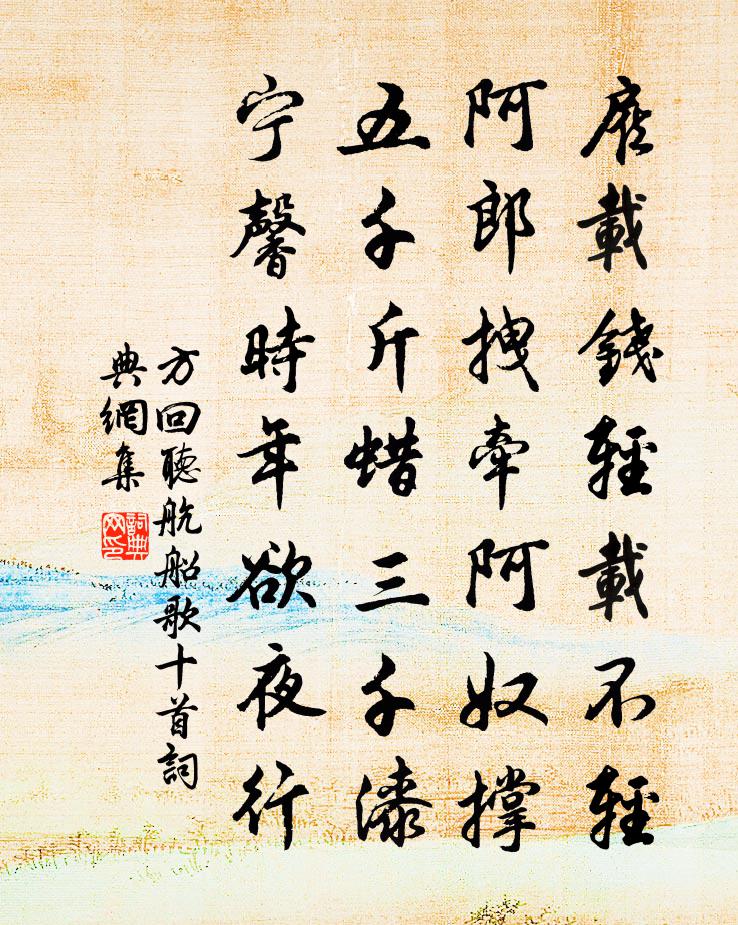 雇載錢輕載不輕
阿郎拽牽阿奴撐
五千斤蜡三千漆
宁馨時年欲夜行
方回聽航船歌十首詞
典網集
詞典
网印